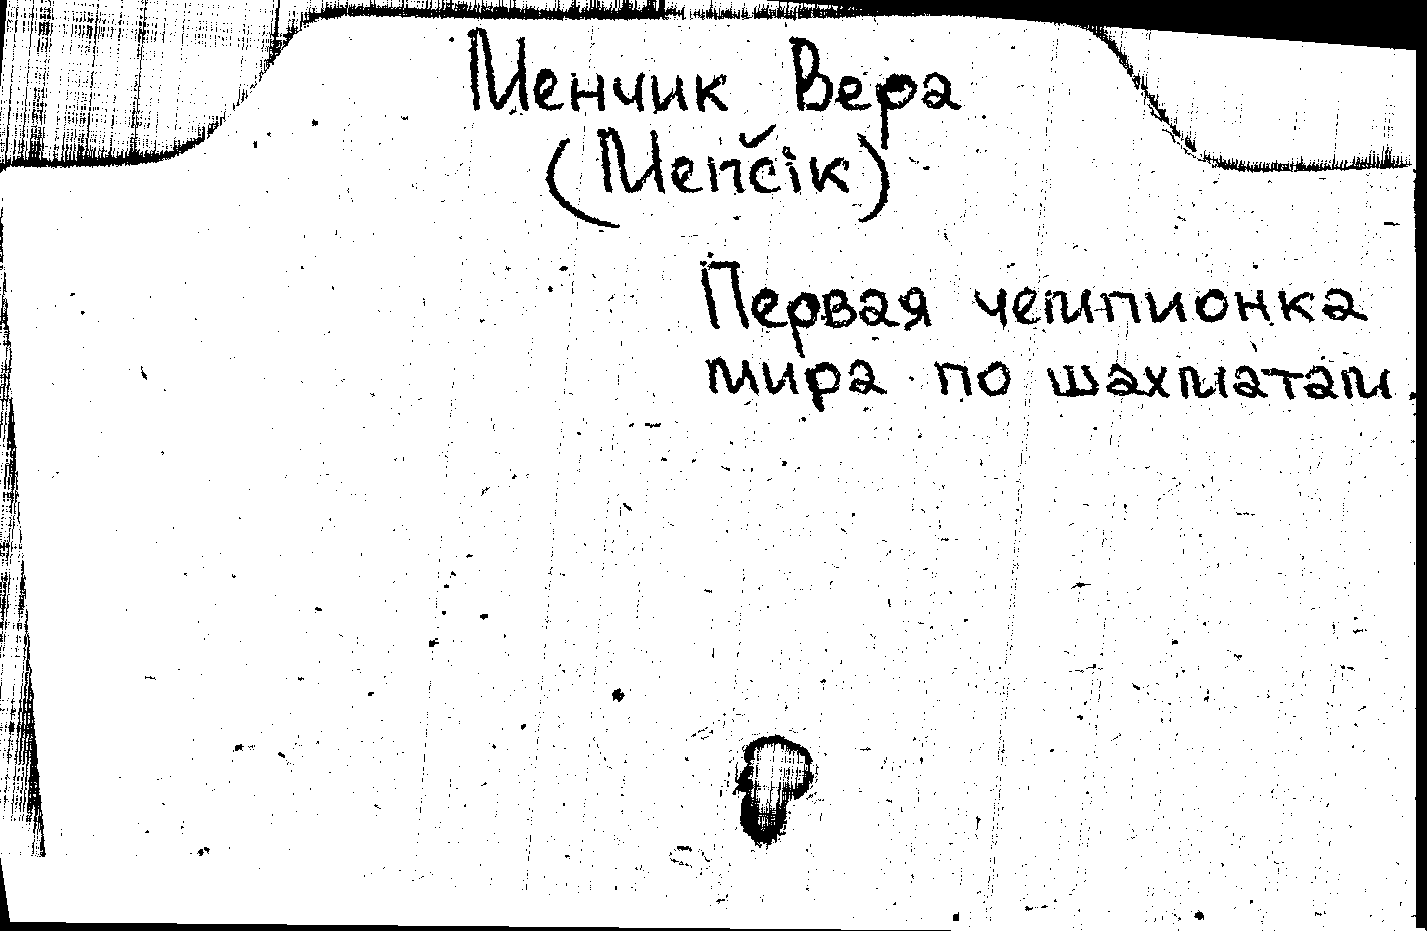 Менчик Вера
(Menčik)
Первая чемпионка
мира по шахматам.